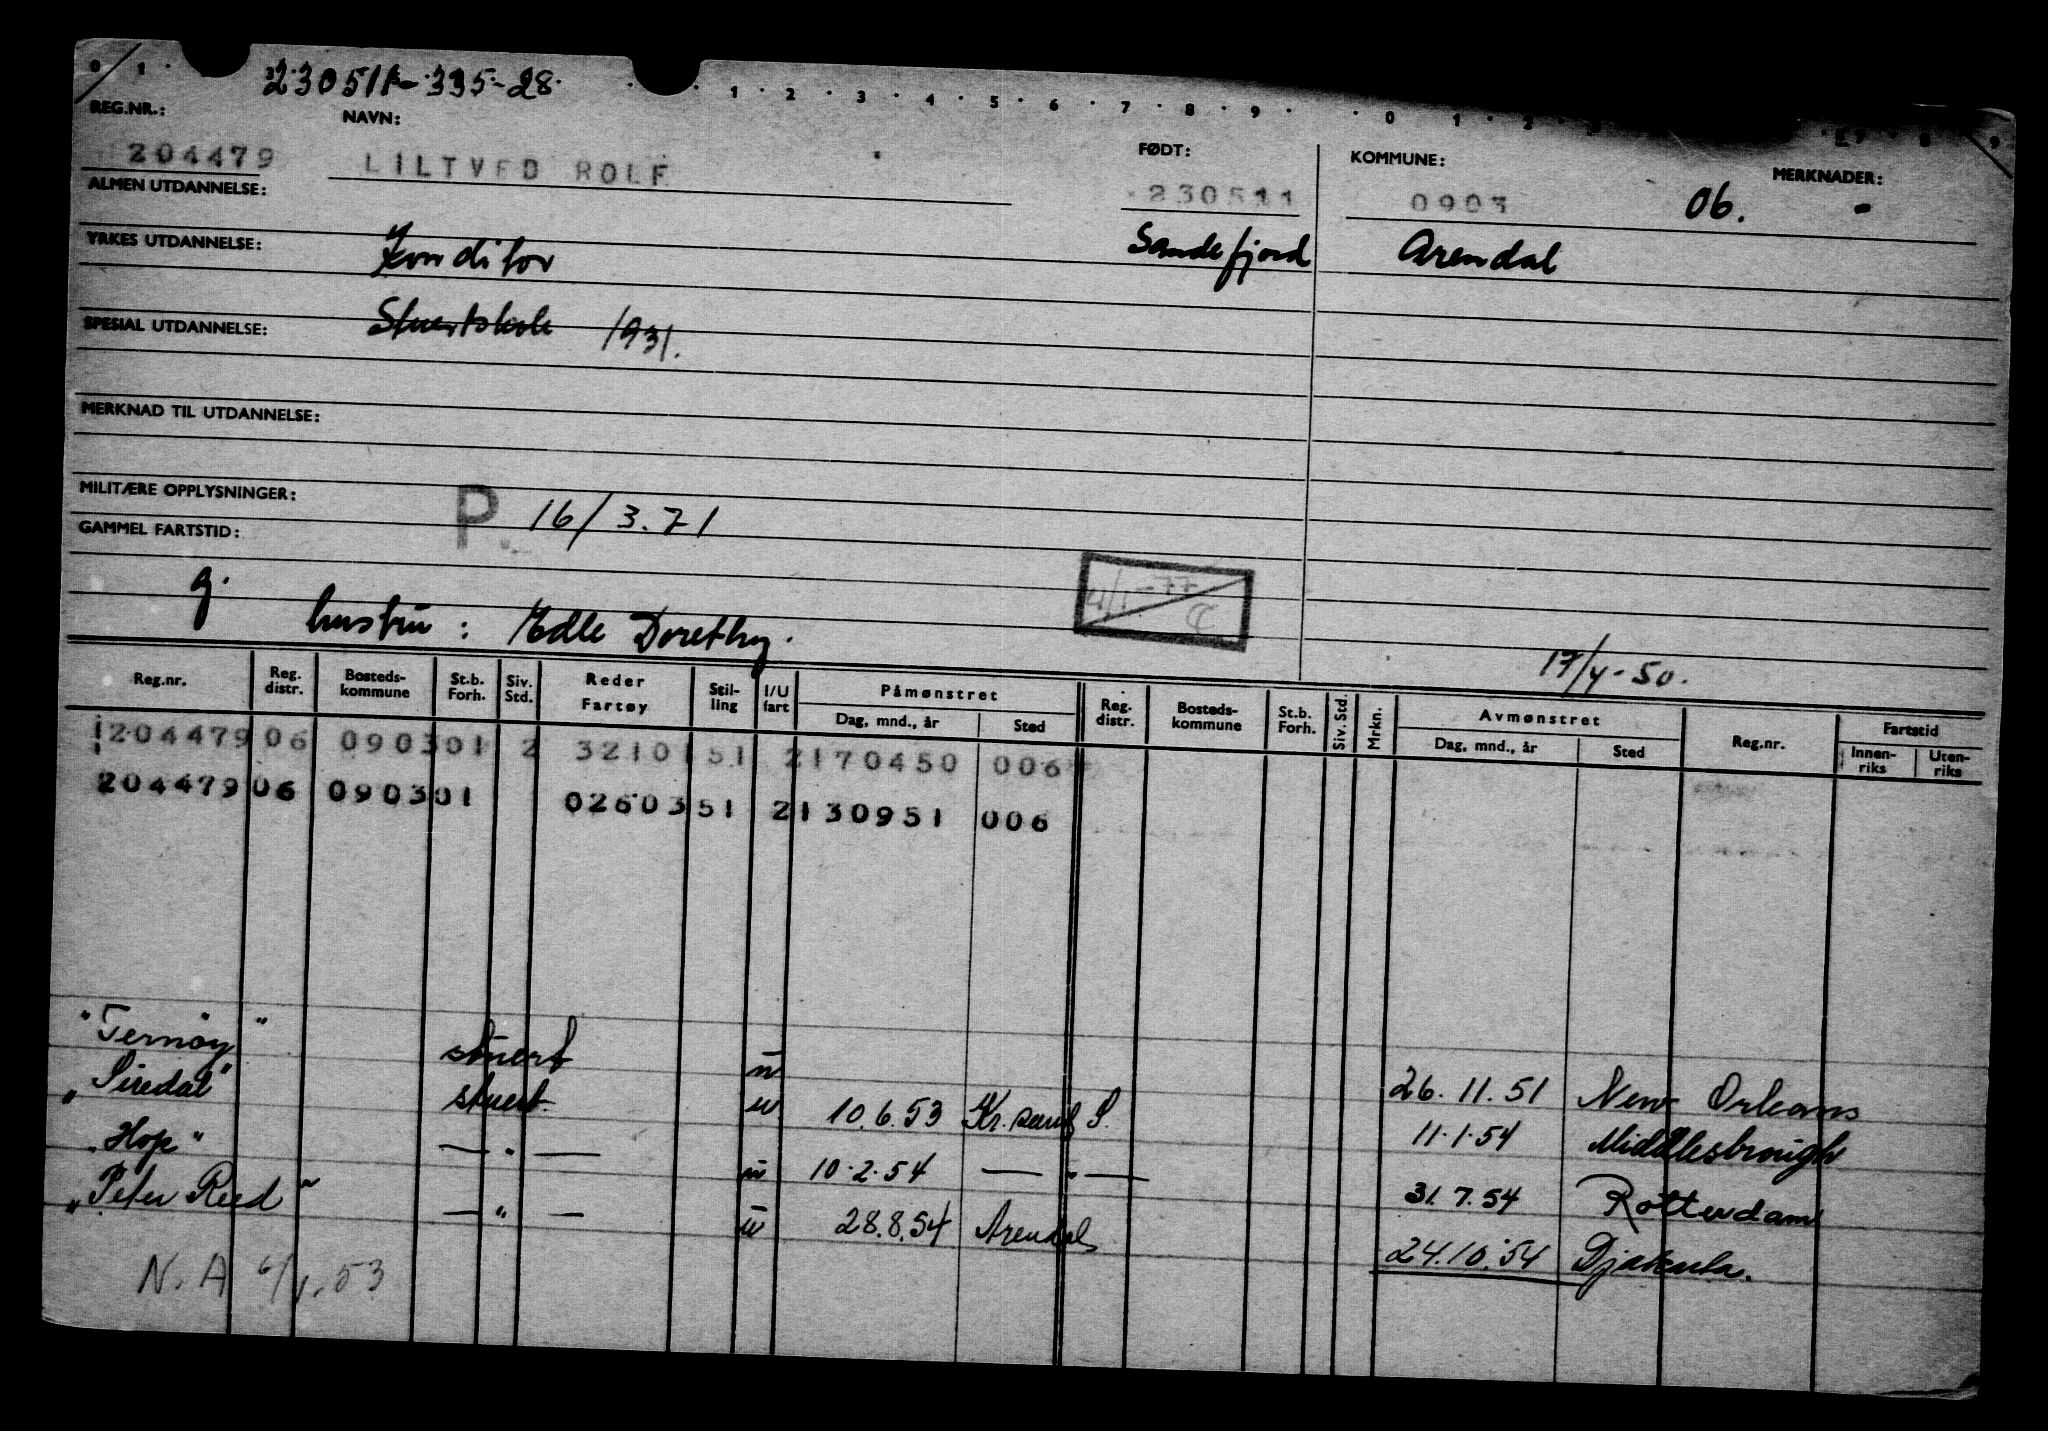 0 1 . 230511-335-28. . . 1 . 2 . 3 . 4 . 5 . 6 . 7 . 8 . 9 . . 0 1 . 2 8 9
REG.NR.: NAVN: FØDT: KOMMUNE: MERKNADER:
204479 LILTVED ROLF 230511 0903 06. -
ALMEN UTDANNELSE:
YRKES UTDANNELSE: Konditor Sandefjord Arendal
SPESIAL UTDANNELSE: Stuertskole 1931.
MERKNAD TIL UTDANNELSE:
MILITÆRE OPPLYSNINGER: P. 16/3.71
GAMMEL FARTSTID:
4/1-77
g. hustru: Edle Dorethy.
17/4-50.
Reg.nr. Reg. distr. Bosteds-kommune St.b. Forh. Siv. Std. Reder Fartøy Stil-ling I/U fart Påmønstret Dag, mnd., år Sted Reg. distr. Bosteds-kommune St.b. Forh. Siv. Std. Mrkn. Avmønstret Dag, mnd., år Sted Reg.nr. Fartstid Innen-riks Uten-riks
1204479 06 0903 01 2 3210 151 2 170450 006
204479 06 0903 01 02603 51 2 130951 006
"Ternøy" stuert u 26.11.51 New Orleans
"Siredal" stuert. u 10.6.53 Kr.sand S. 11.1.54 Middlesbrough
"Hop" — " — u 10.2.54 — " — 31.7.54 Rotterdam
"Peter Reed" — " — u 28.8.54 Arendal 24.10.54 Djakarta.
N.A 6/1.53